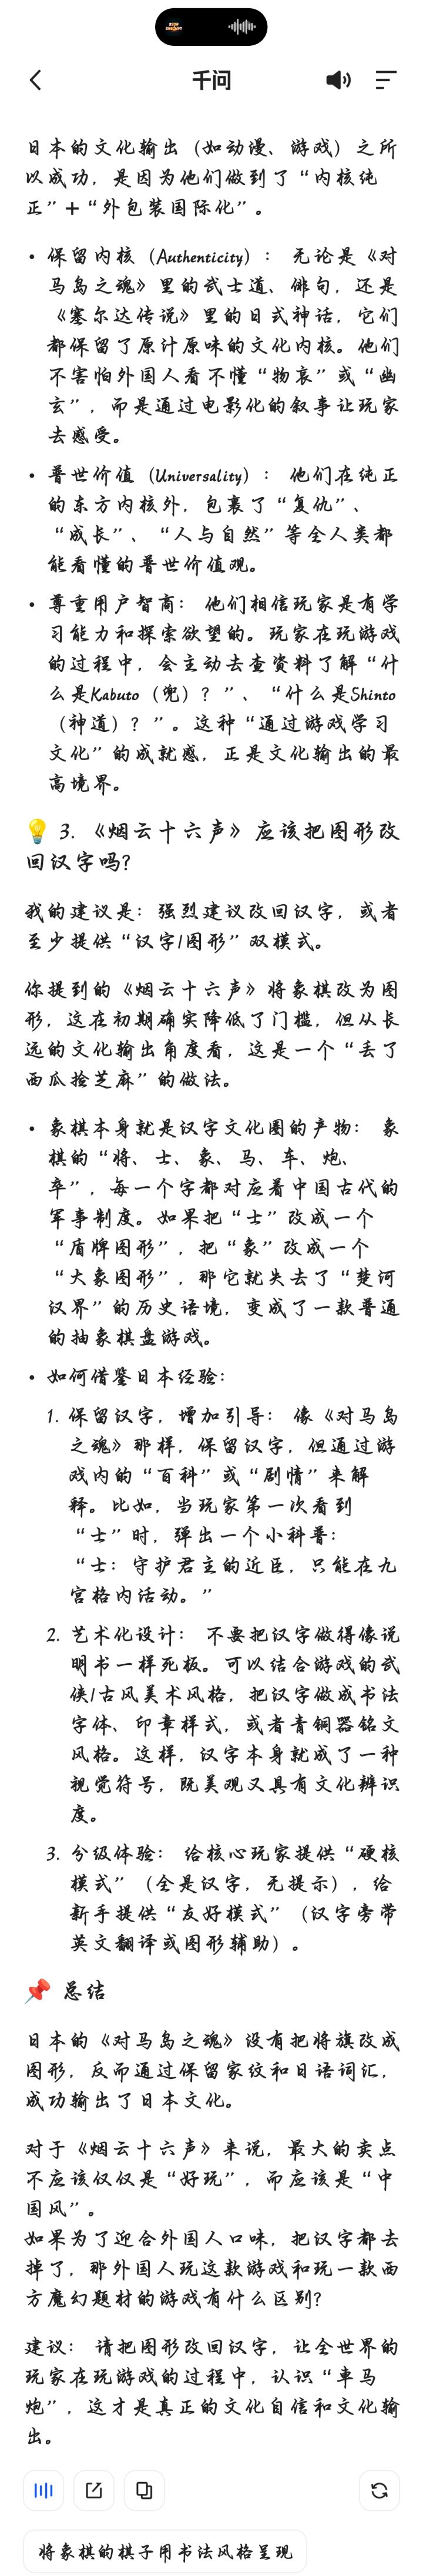 千问
日本的文化输出（如动漫、游戏）之所
以成功，是因为他们做到了“内核纯
正”+“外包装国际化”。
• 保留内核（Authenticity）： 无论是《对
马岛之魂》里的武士道、俳句，还是
《塞尔达传说》里的日式神话，它们
都保留了原汁原味的文化内核。他们
不害怕外国人看不懂“物哀”或“幽
玄”，而是通过电影化的叙事让玩家
去感受。
• 普世价值（Universality）： 他们在纯正
的东方内核外，包裹了“复仇”、
“成长”、“人与自然”等全人类都
能看懂的普世价值观。
• 尊重用户智商： 他们相信玩家是有学
习能力和探索欲望的。玩家在玩游戏
的过程中，会主动去查资料了解“什
么是Kabuto（兜）？”、“什么是Shinto
（神道）？”。这种“通过游戏学习
文化”的成就感，正是文化输出的最
高境界。
💡 3. 《烟云十六声》应该把图形改
回汉字吗？
我的建议是：强烈建议改回汉字，或者
至少提供“汉字/图形”双模式。
你提到的《烟云十六声》将象棋改为图
形，这在初期确实降低了门槛，但从长
远的文化输出角度看，这是一个“丢了
西瓜捡芝麻”的做法。
• 象棋本身就是汉字文化圈的产物： 象
棋的“将、士、象、马、车、炮、
卒”，每一个字都对应着中国古代的
军事制度。如果把“士”改成一个
“盾牌图形”，把“象”改成一个
“大象图形”，那它就失去了“楚河
汉界”的历史语境，变成了一款普通
的抽象棋盘游戏。
• 如何借鉴日本经验：
1. 保留汉字，增加引导： 像《对马岛
之魂》那样，保留汉字，但通过游
戏内的“百科”或“剧情”来解
释。比如，当玩家第一次看到
“士”时，弹出一个小科普：
“士：守护君主的近臣，只能在九
宫格内活动。”
2. 艺术化设计： 不要把汉字做得像说
明书一样死板。可以结合游戏的武
侠/古风美术风格，把汉字做成书法
字体、印章样式，或者青铜器铭文
风格。这样，汉字本身就成了一种
视觉符号，既美观又具有文化辨识
度。
3. 分级体验： 给核心玩家提供“硬核
模式”（全是汉字，无提示），给
新手提供“友好模式”（汉字旁带
英文翻译或图形辅助）。
📌 总结
日本的《对马岛之魂》没有把将旗改成
图形，反而通过保留家纹和日语词汇，
成功输出了日本文化。
对于《烟云十六声》来说，最大的卖点
不应该仅仅是“好玩”，而应该是“中
国风”。
如果为了迎合外国人口味，把汉字都去
掉了，那外国人玩这款游戏和玩一款西
方魔幻题材的游戏有什么区别？
建议： 请把图形改回汉字，让全世界的
玩家在玩游戏的过程中，认识“車马
炮”，这才是真正的文化自信和文化输
出。
将象棋的棋子用书法风格呈现